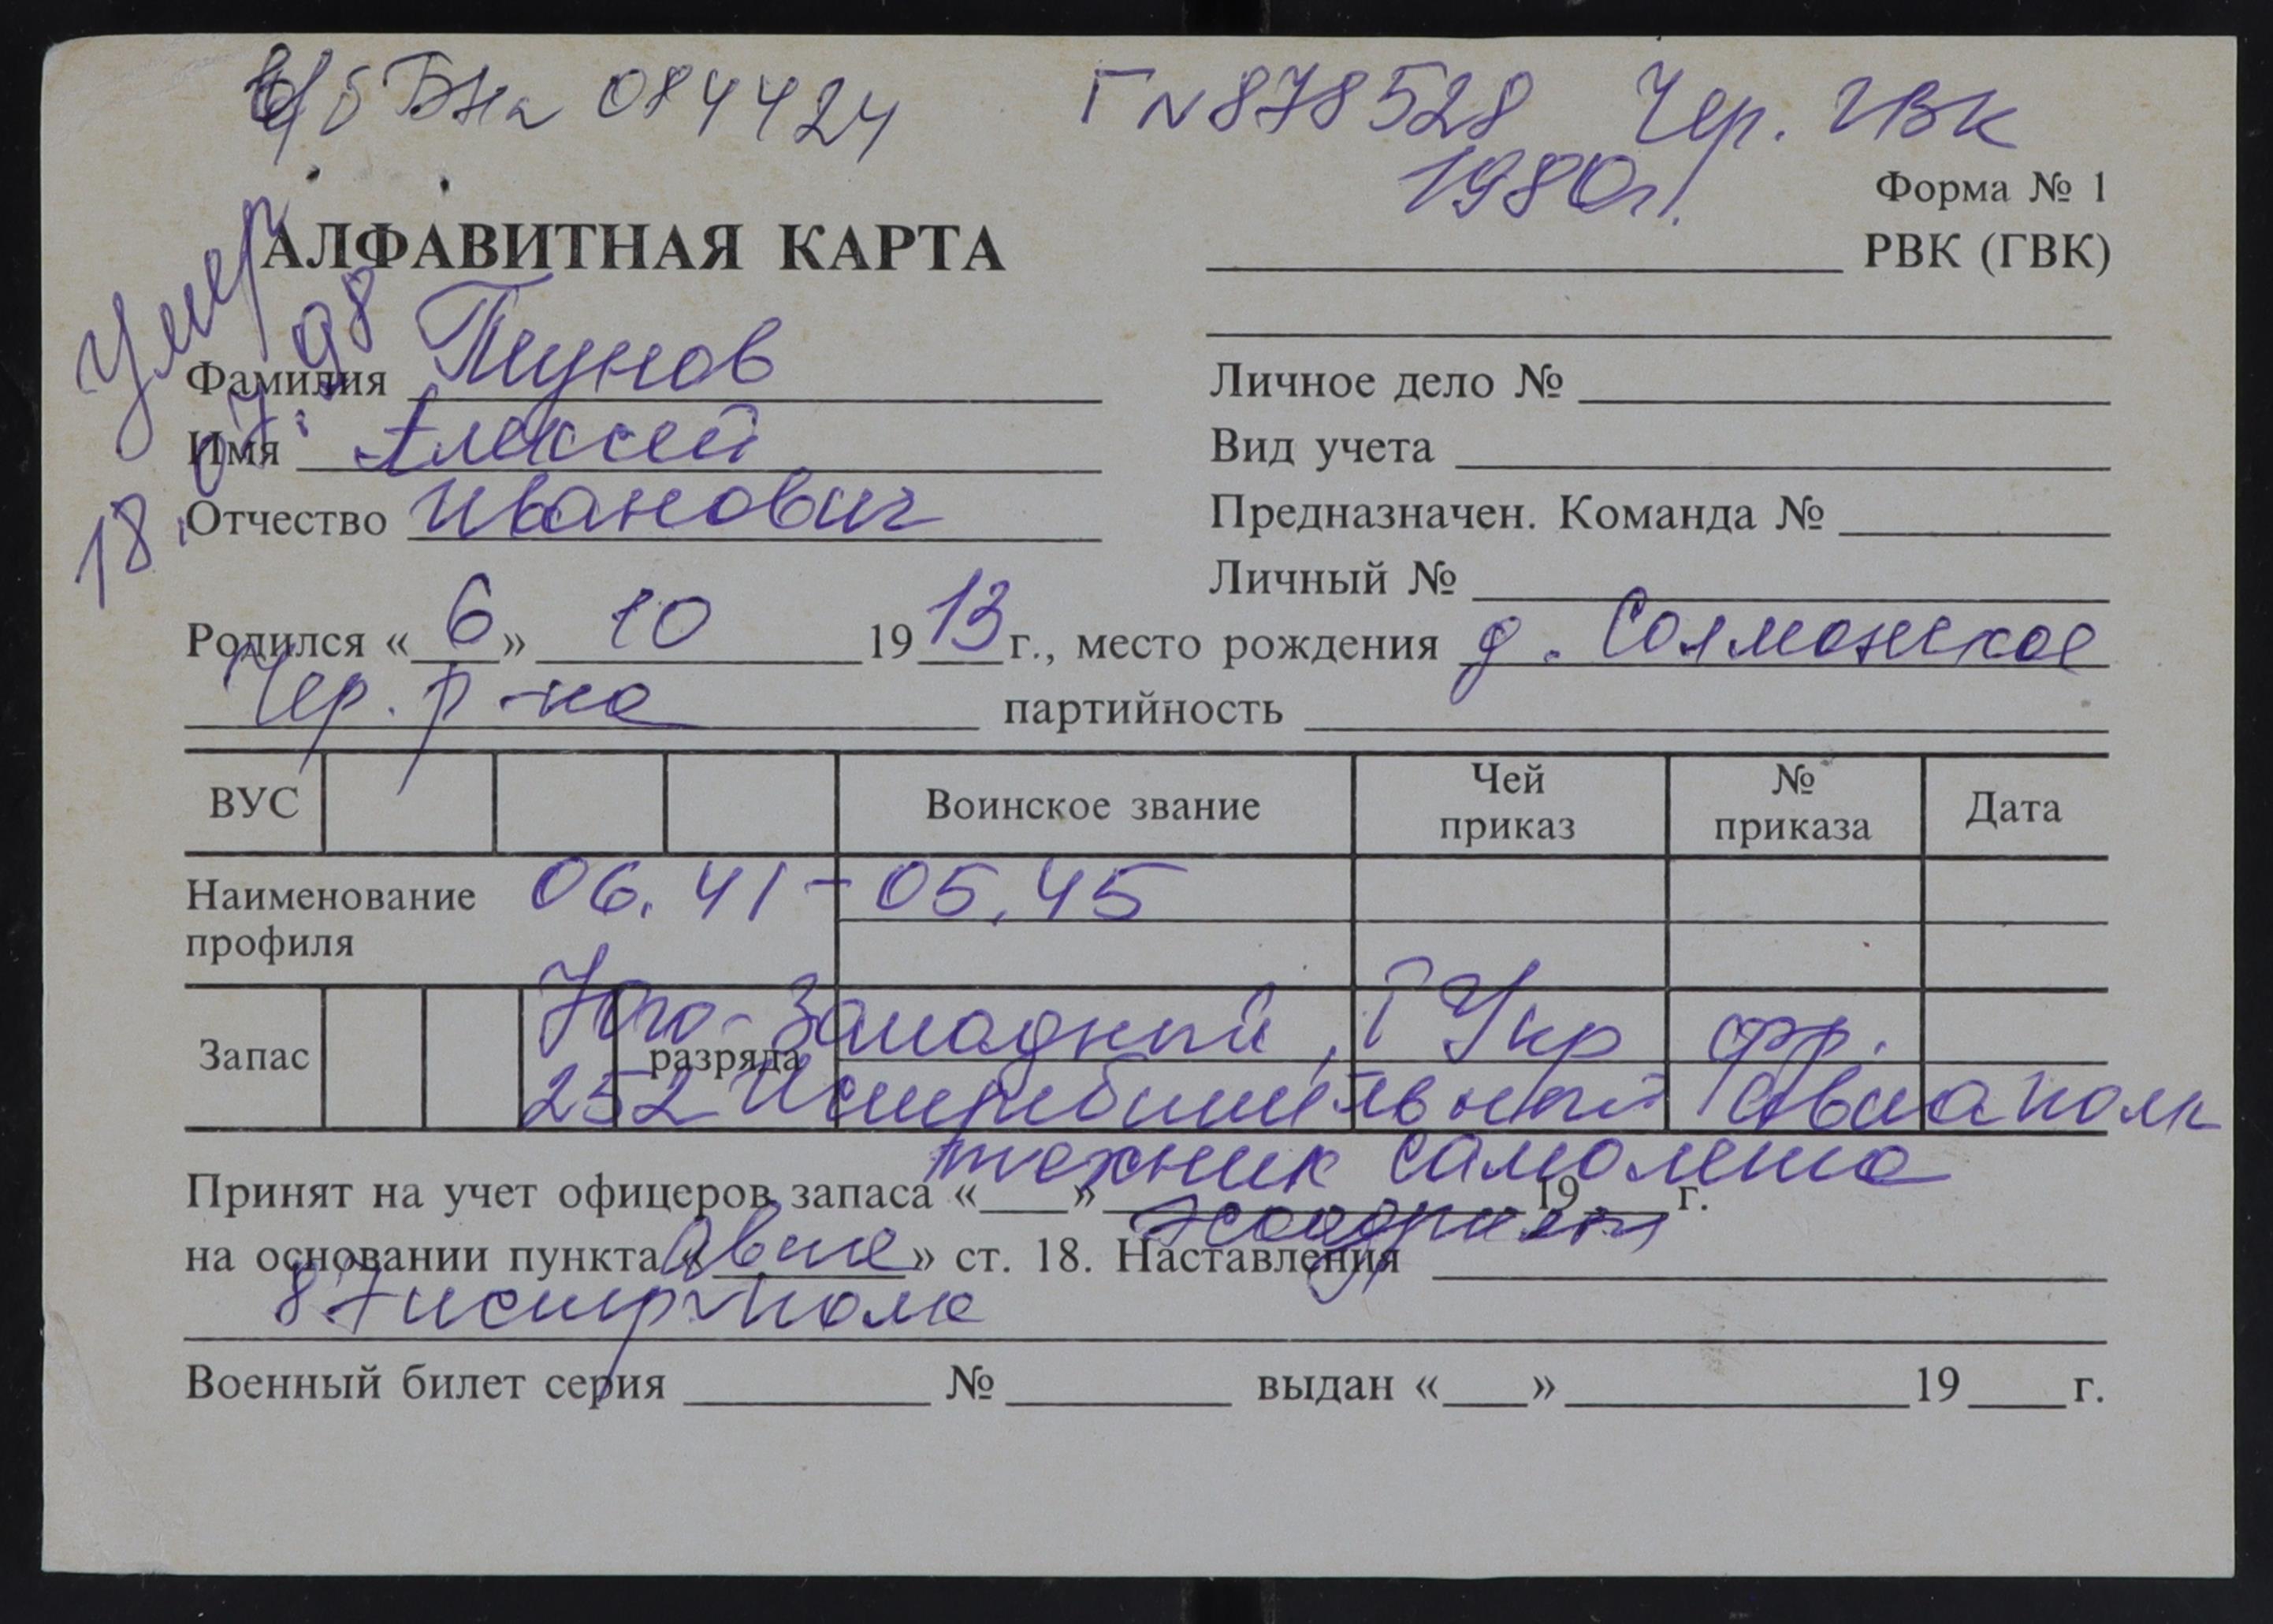 в/б БНа 084424 Г N 878528 Чер. ГВК
1980г.
Форма № 1
АЛФАВИТНАЯ КАРТА
РВК (ГВК)
Умер
18.07.98
Фамилия Тиунов
Имя Алексей
Отчество Иванович
Личное дело №
Вид учета
Предназначен. Команда №
Личный №
Родился «6» 10 1913 г., место рождения д.
Чер. р-на партийность
ВУС Воинское звание Чей приказ № приказа Дата
Наименование профиля 06.41-05.45
Юго-Западный, I Укр фр.
Запас разряда
252 Истребительный авиаполк
техник самолета
Принят на учет офицеров запаса « » 19 г.
эскадрильи
на основании пункта « » ст. 18. Наставления
авиа
87 истр полка
Военный билет серия № выдан « » 19 г.